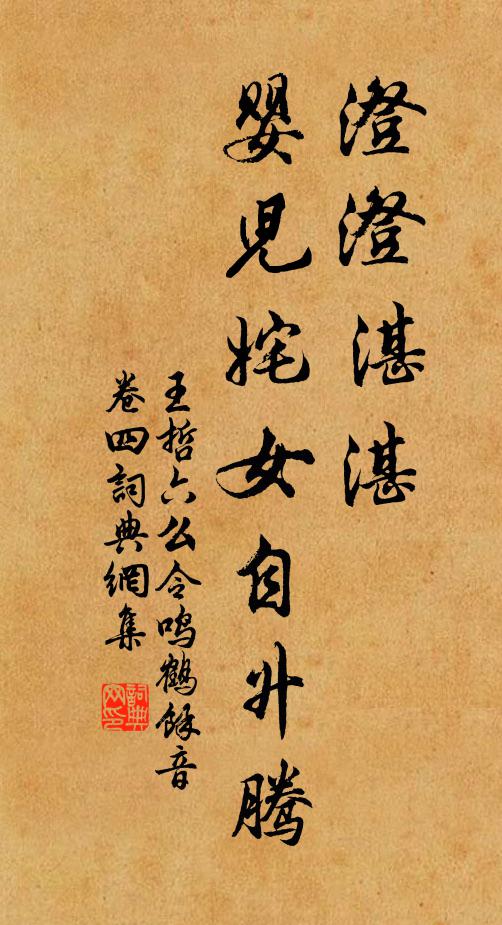 澄澄湛湛
嬰兒姹女自升騰
王哲六么令鸣鶴餘音
卷四詞典網集
詞典网印